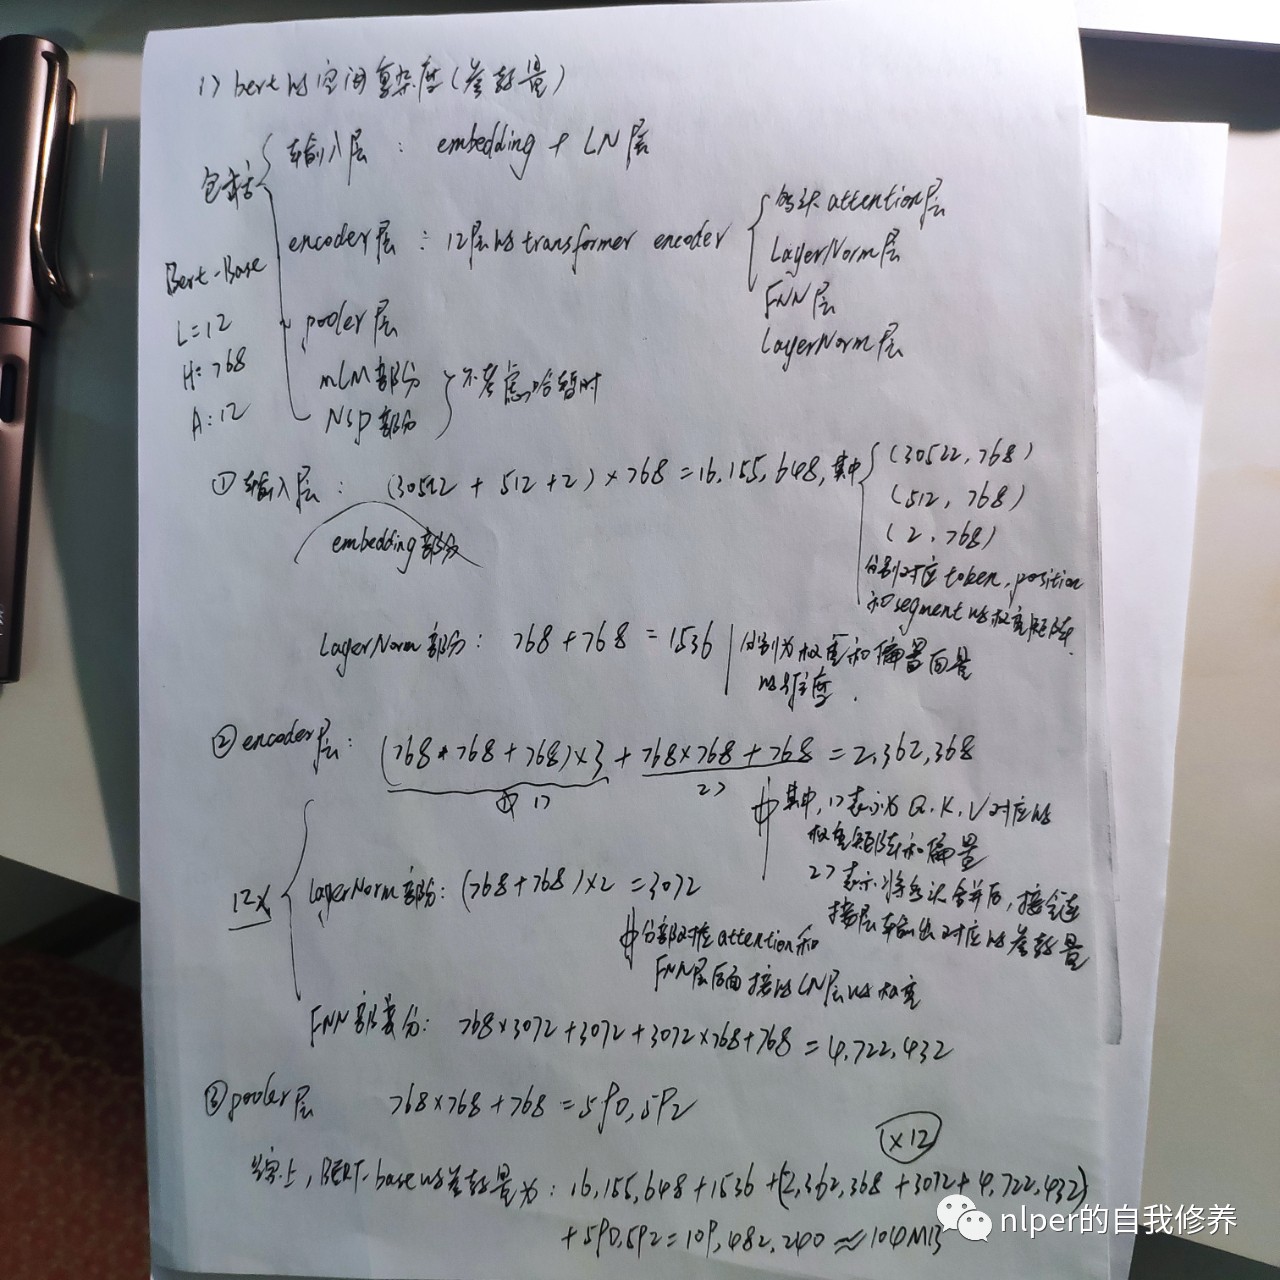 1) bert的空间复杂度(参数量)
包括
输入层 : embedding + LN层
encoder层 : 12层的transformer encoder
多头attention层
LayerNorm层
FNN层
LayerNorm层
pooler层
MLM部分
NSP部分
不考虑哈暂时
Bert-Base
L=12
H=768
A:12
①输入层: (30522 + 512 + 2) × 768 = 16,155,648, 其中
(30522, 768)
(512, 768)
(2, 768)
分别对应token, position
和segment的权重矩阵.
embedding部分
LayerNorm部分: 768 + 768 = 1536
分别为权重和偏置向量
的维度.
②encoder层: (768*768 + 768)×3 + 768×768 + 768 = 2,362,368
1) 2)
其中, 1)表示为Q.K.V对应的
权重矩阵和偏量
2)表示将多头合并后, 接全连
接层输出对应的参数量
12×
LayerNorm部分: (768+768)×2 = 3072
分部对应attention和
FNN层后面接的LN层的权重
FNN部分: 768×3072+3072+3072×768+768 = 4,722,432
③pooler层 768×768+768 = 590,592
(×12)
综上, BERT-base的参数量为: 16,155,648 + 1536 + (2,362,368 + 3072 + 4,722,432)
+ 590,592 = 109,482,240 ≈ 104MB
nlper的自我修养